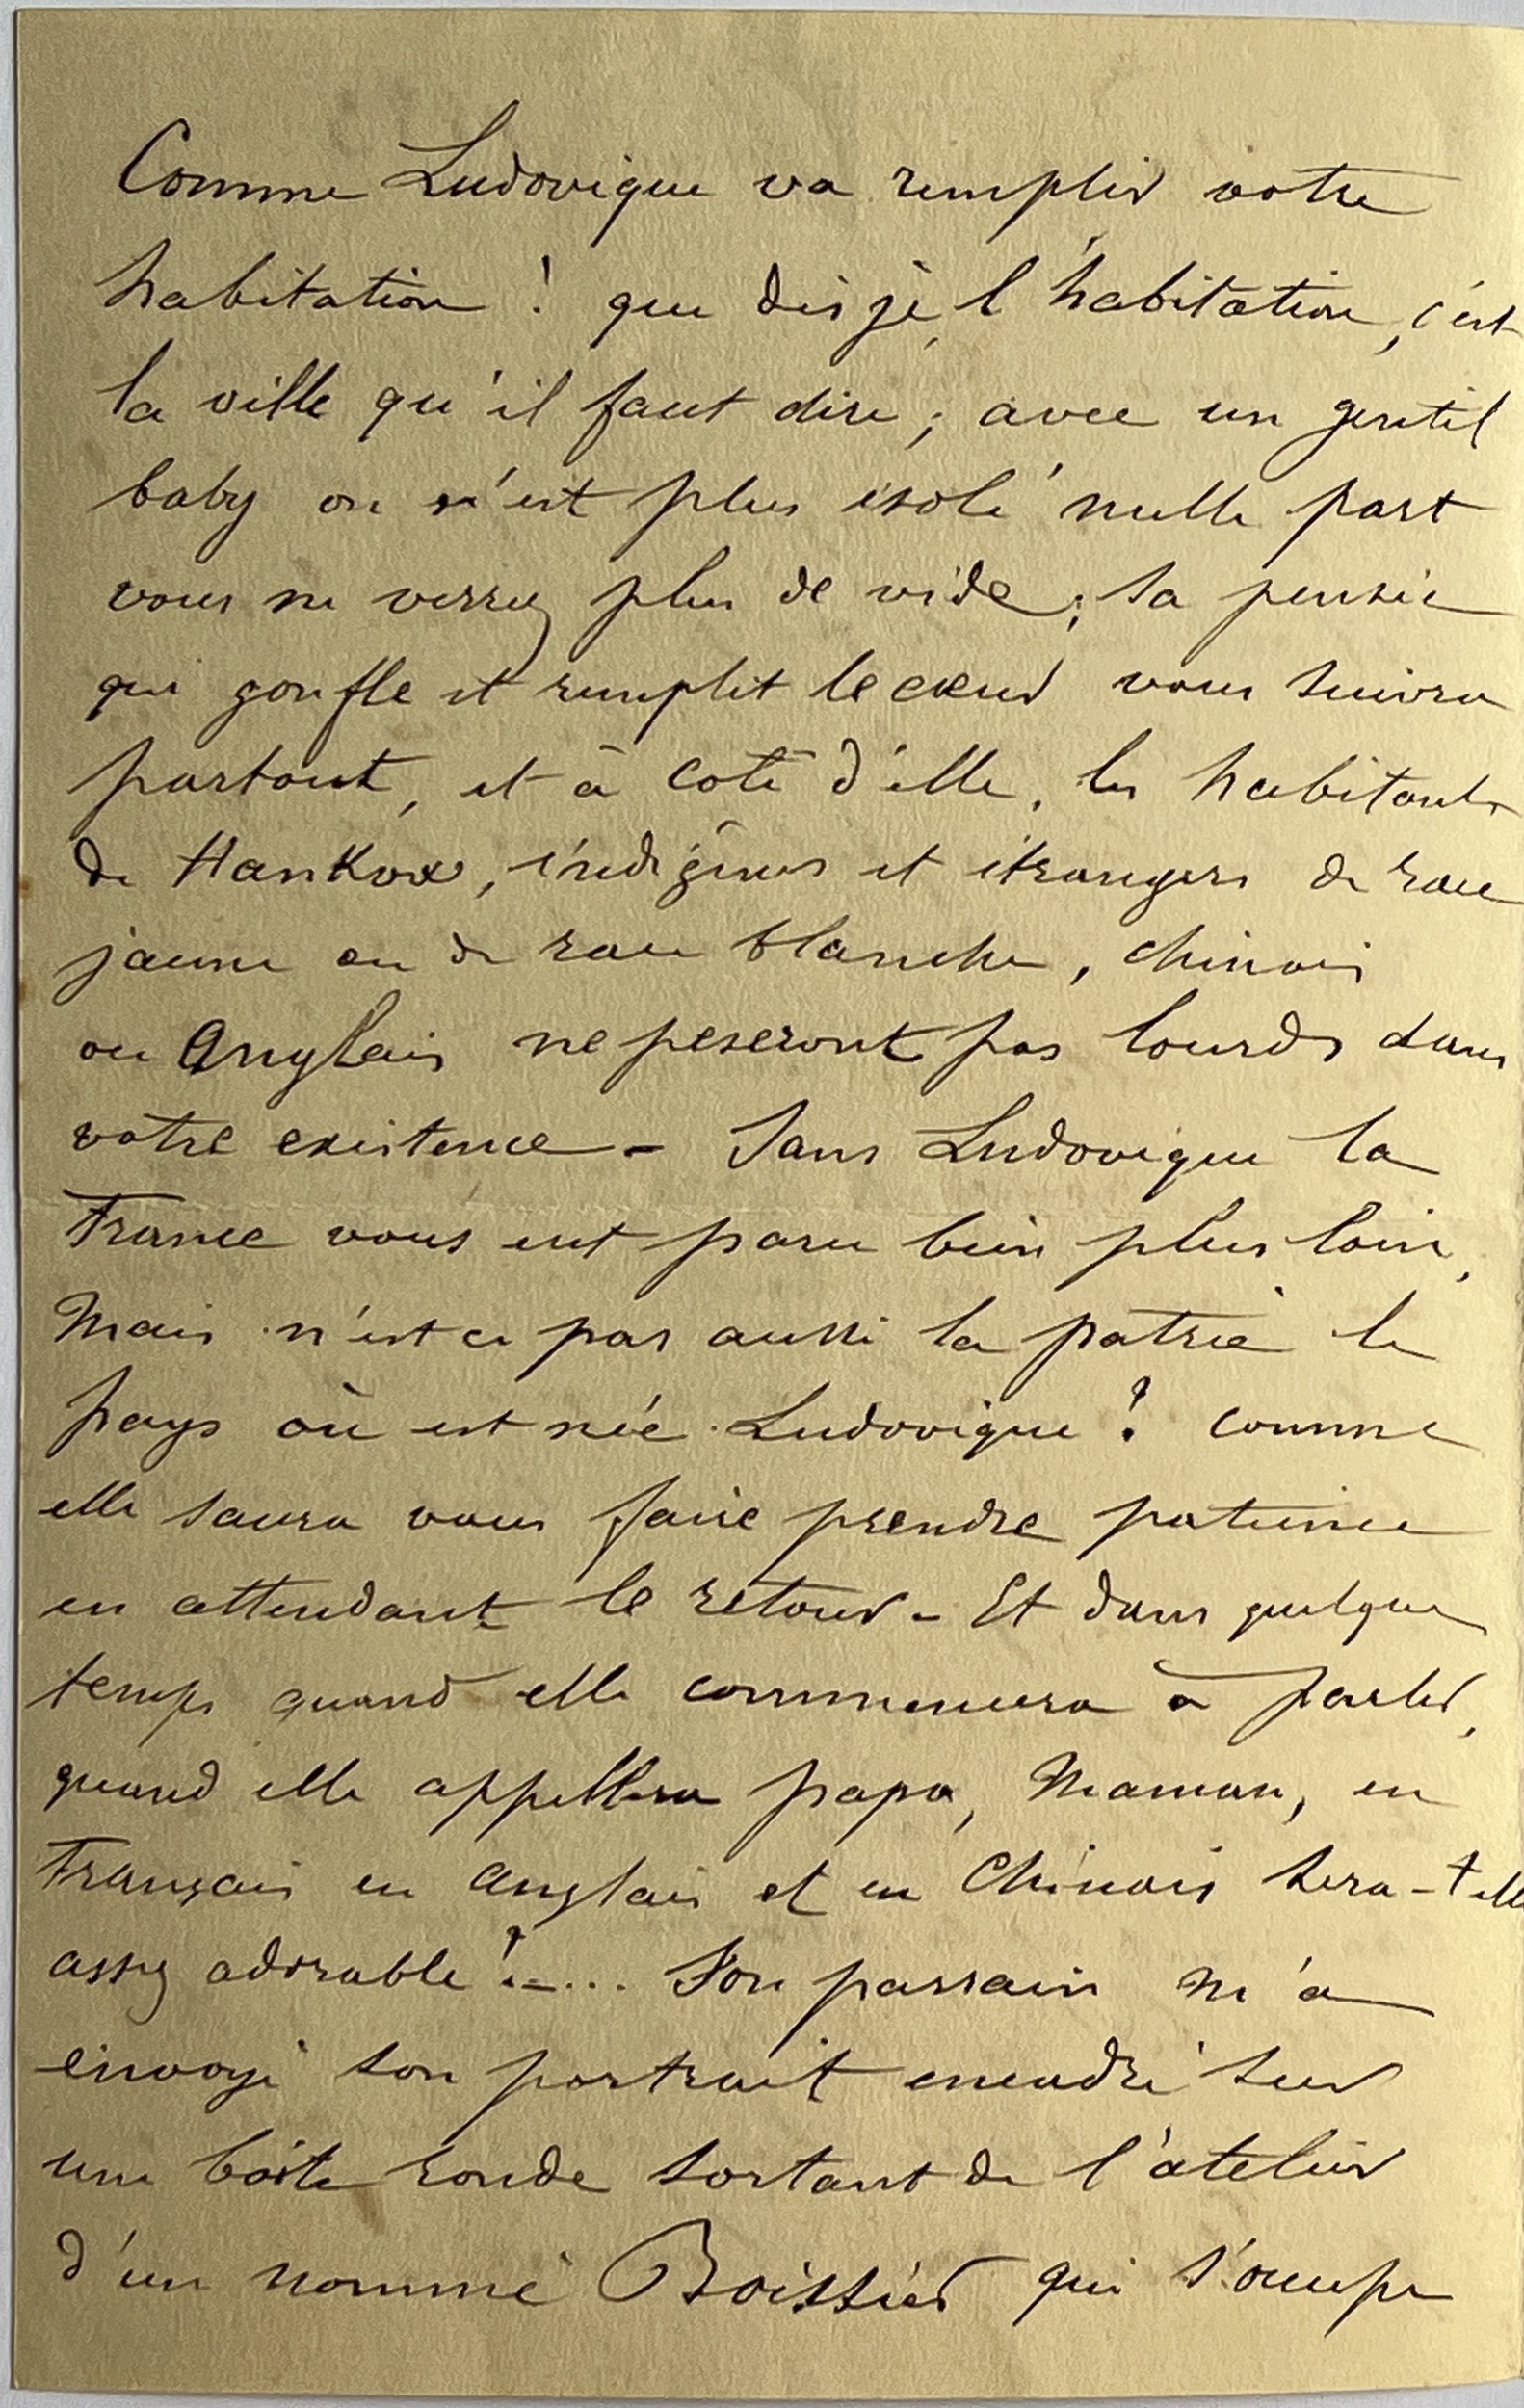 Comme Ludovique va remplir votre
habitation ! que dis je, l'habitation, c'est
la ville qu'il faut dire ; avec un gentil
baby on n'est plus isolé nulle part
vous ne verrez plus de vide ; sa pensée
qui gonfle et remplit le cœur vous suivra
partout, et à coté d'elle, les habitants
de Hankow, indigènes et étrangers de race
jaune ou de race blanche, chinois
ou Anglais ne peseront pas lourds dans
votre existence - Sans Ludovique la
France vous eut paru bien plus loin,
Mais n'est ce pas aussi la patrie le
pays où est née Ludovique ? comme
elle saura vous faire prendre patience
en attendant le retour - Et dans quelque
temps quand elle commencera à parler,
quand elle appellera papa, Maman, en
Français en anglais et en Chinois sera-t elle
assez adorable ! -... Son parrain m'a
envoyé son portrait encadré sur
une boite ronde sortant de l'atelier
d'un nommé Boissier qui s'occupe